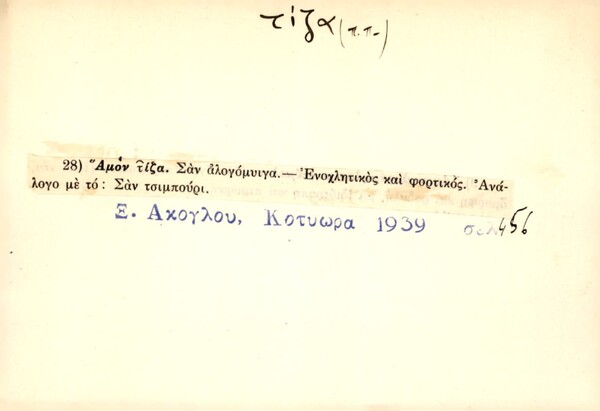 τίζα (π.π.)
28) Ἀμὸν τίζα. Σὰν ἀλογόμυιγα.— Ἐνοχλητικὸς καὶ φορτικός. Ἀνά-
λογο μὲ τό: Σὰν τσιμπούρι.
Ξ. Ακογλου, Κοτυωρα 1939 σελ. 456